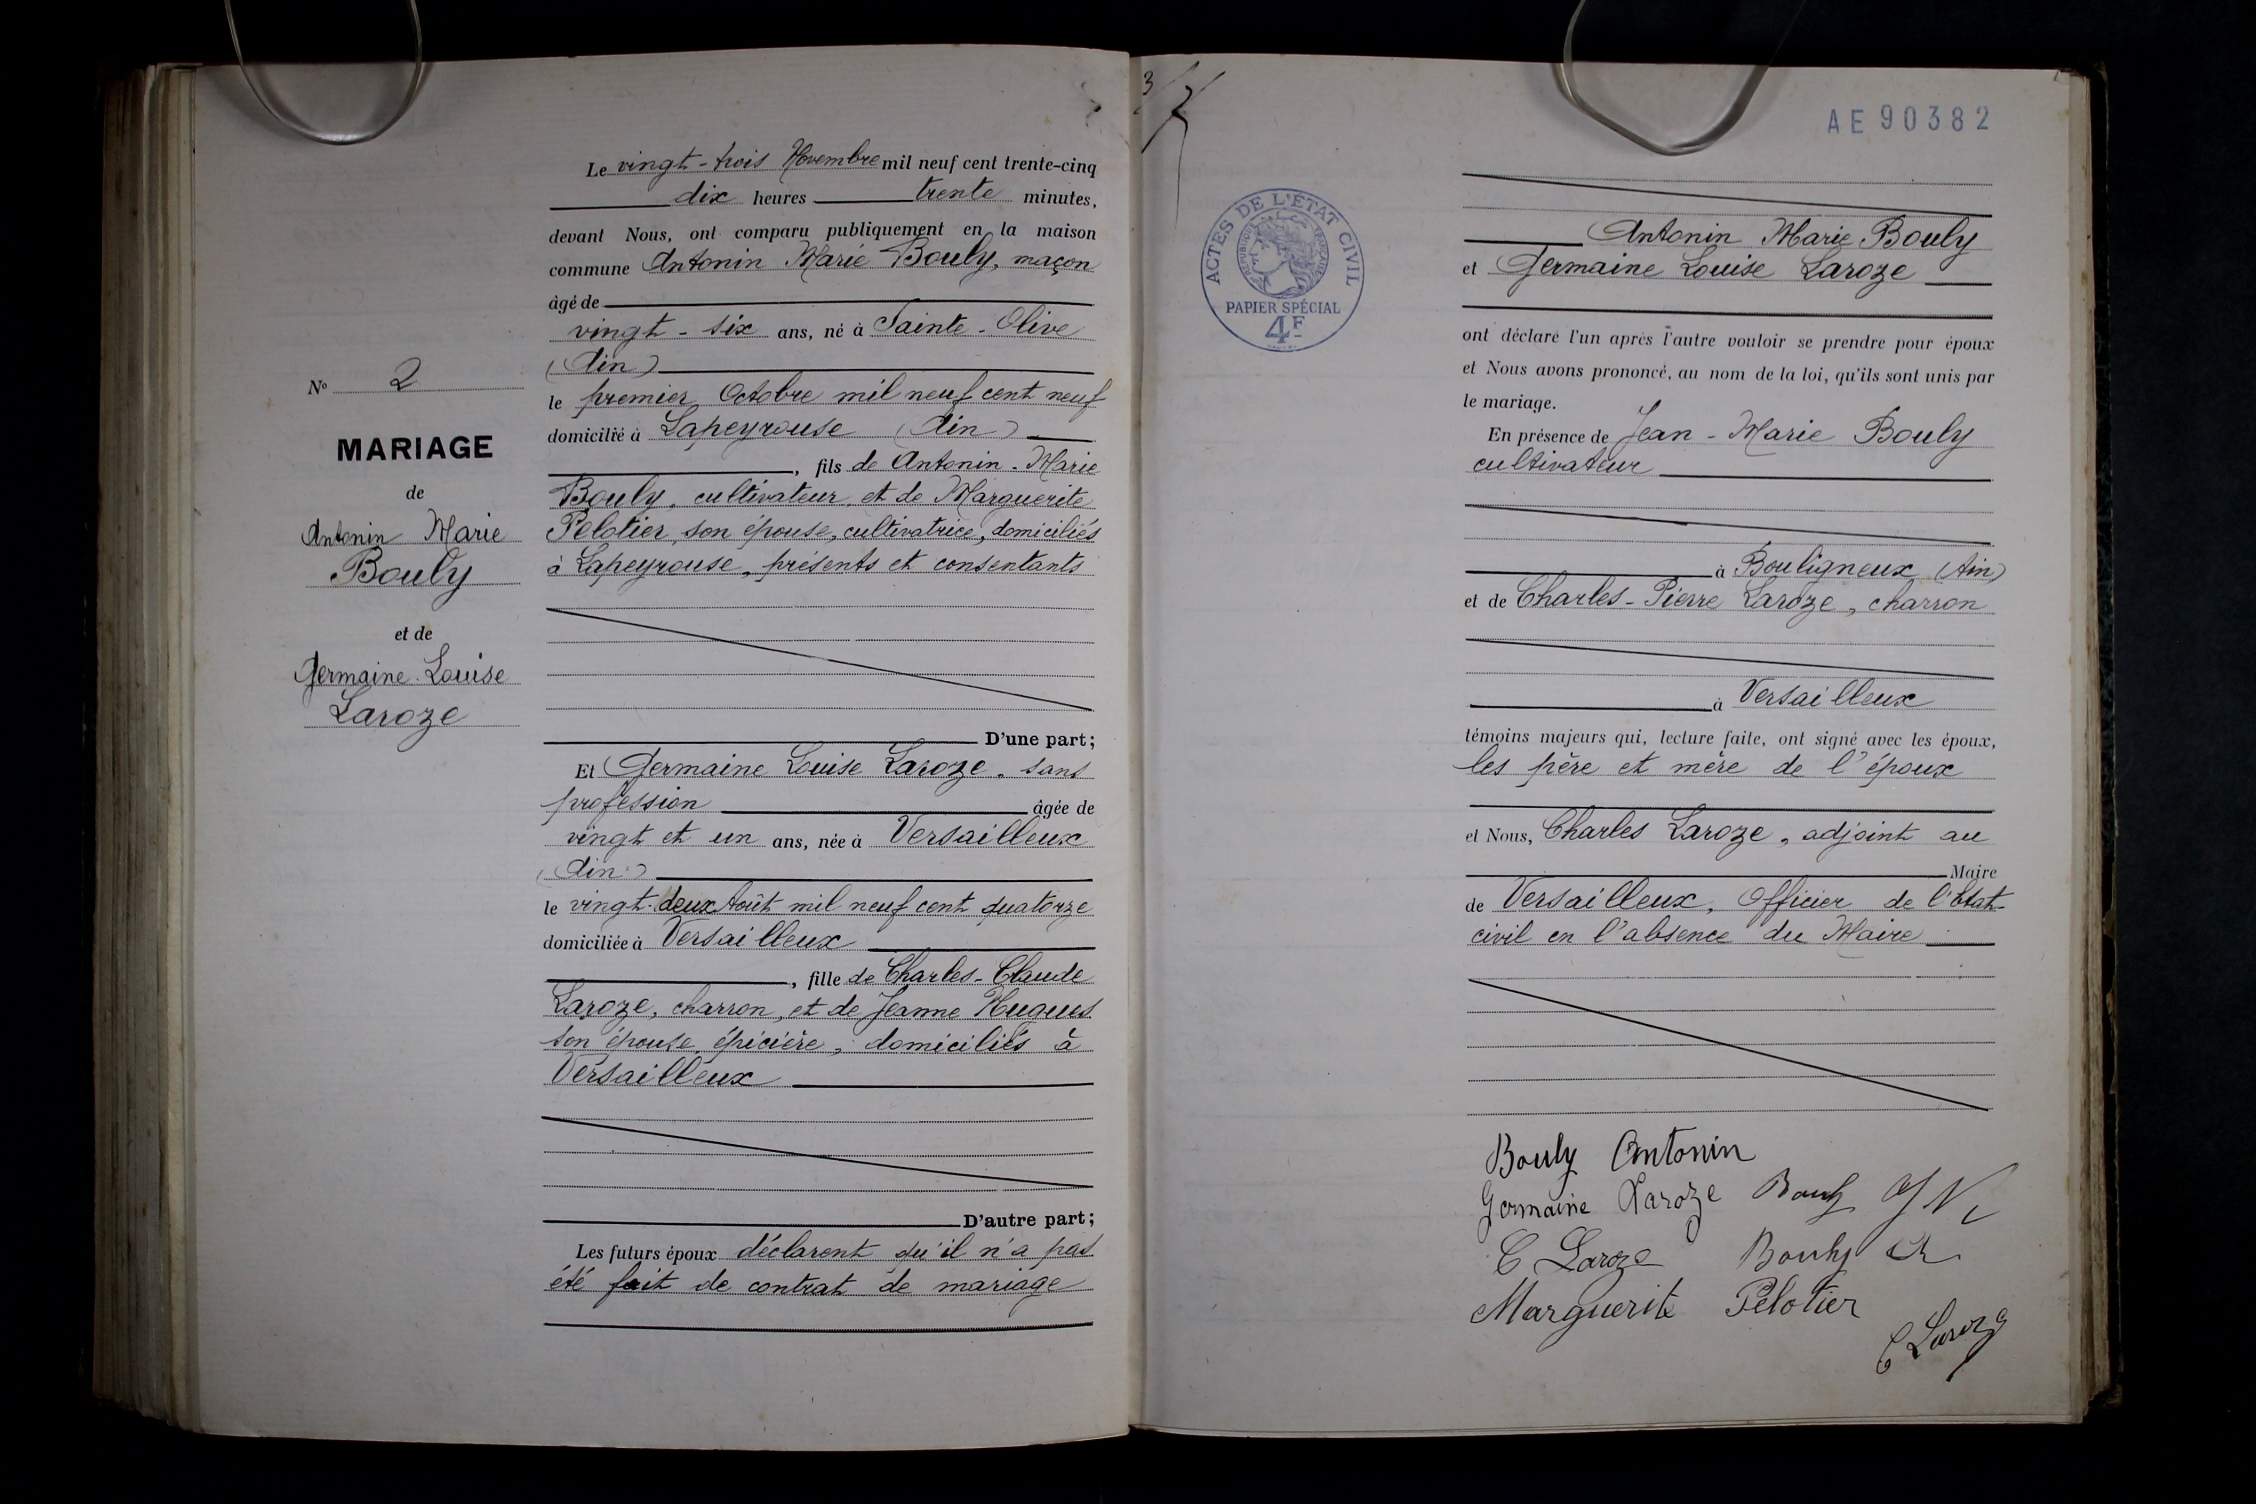 Le vingt-trois Novembre mil neuf cent trente-cinq
dix heures trente minutes,
devant Nous, ont comparu publiquement en la maison
commune Antonin Marie Bouly, maçon
âgé de
vingt-six ans, né à Sainte-Olive
(Ain)
le premier Octobre mil neuf cent neuf
domicilié à Lapeyrouse (Ain)
, fils de Antonin-Marie
Bouly, cultivateur, et de Marguerite
Pelotier, son épouse, cultivatrice, domiciliés
à Lapeyrouse, présents et consentants
D'une part;
Et Germaine Louise Laroze, sans
profession âgée de
vingt et un ans, née à Versailleux
(Ain)
le vingt-deux Août mil neuf cent quatorze
domiciliée à Versailleux
, fille de Charles-Claude
Laroze, charron, et de Jeanne Hugues
son épouse, épicière, domiciliés à
Versailleux
D'autre part;
Les futurs époux déclarent qu'il n'a pas
été fait de contrat de mariage
No 2
MARIAGE
de
Antonin Marie
Bouly
et de
Germaine Louise
Laroze
3
AE 90382
ACTES DE L'ÉTAT CIVIL
RÉPUBLIQUE FRANÇAISE
PAPIER SPÉCIAL
4F
Antonin Marie Bouly
et Germaine Louise Laroze
ont déclaré l'un après l'autre vouloir se prendre pour époux
et Nous avons prononcé, au nom de la loi, qu'ils sont unis par
le mariage.
En présence de Jean-Marie Bouly
cultivateur
à Bouligneux (Ain)
et de Charles-Pierre Laroze, charron
à Versailleux
témoins majeurs qui, lecture faite, ont signé avec les époux,
les père et mère de l'époux
et Nous, Charles Laroze, adjoint au
Maire
de Versailleux, Officier de l'État-
civil en l'absence du Maire
Bouly Antonin
Germaine Laroze Bouly
C Laroze Bouly
Marguerite Pelotier
C Laroze